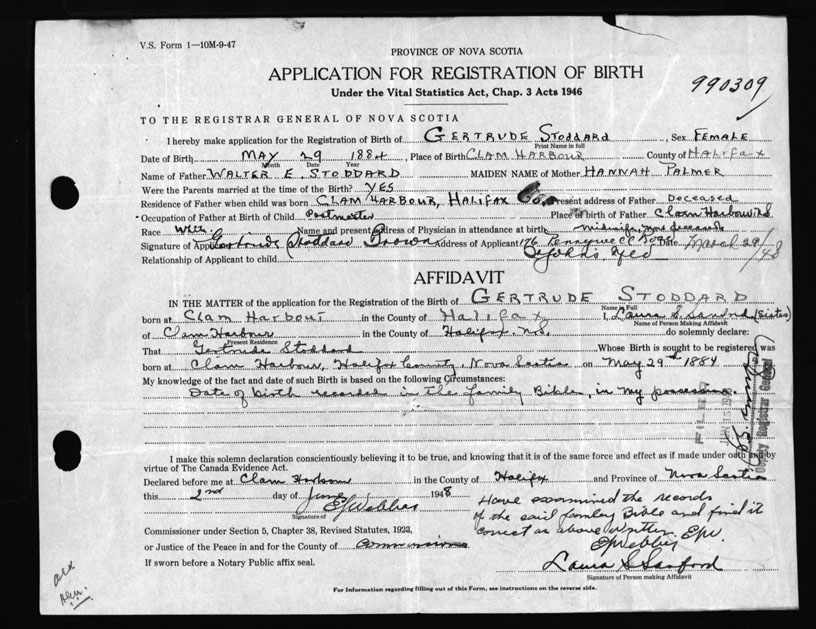 V.S. Form 1—10M-9-47
PROVINCE OF NOVA SCOTIA
APPLICATION FOR REGISTRATION OF BIRTH
Under the Vital Statistics Act, Chap. 3 Acts 1946
990309
TO THE REGISTRAR GENERAL OF NOVA SCOTIA
I hereby make application for the Registration of Birth of GERTRUDE STODDARD, Sex FEMALE
Print Name in full
Date of Birth MAY 29 1884, Place of Birth CLAM HARBOUR County of HALIFAX
Month Date Year
Name of Father WALTER E. STODDARD MAIDEN NAME of Mother HANNAH PALMER
Were the Parents married at the time of the Birth? YES
Residence of Father when child was born CLAM HARBOUR, HALIFAX Co. Present address of Father Deceased
Occupation of Father at Birth of Child Postmaster Place of birth of Father Clam Harbour N.S.
Race White Name and present address of Physician in attendance at birth midwife, now deceased
Signature of Applicant Gertrude Stoddard Brown Address of Applicant 176 Pennywell Road Date March 29/48
Relationship of Applicant to child St Johns Nfld
AFFIDAVIT
IN THE MATTER of the application for the Registration of the Birth of GERTRUDE STODDARD
Name in Full
born at Clam Harbour in the County of Halifax I, Laura S. Sanford (Sister)
Name of Person Making Affidavit
of Clam Harbour in the County of Halifax N.S. do solemnly declare:
Present Residence
That Gertrude Stoddard Whose Birth is sought to be registered was
born at Clam Harbour, Halifax County, Nova Scotia on May 29th 1884
My knowledge of the fact and date of such Birth is based on the following Circumstances:
Date of birth recorded in the family Bible, in my possession.
FILED
Deputy Registrar General
I make this solemn declaration conscientiously believing it to be true, and knowing that it is of the same force and effect as if made under oath and by
virtue of The Canada Evidence Act.
Declared before me at Clam Harbour in the County of Halifax and Province of Nova Scotia
this 2nd day of June 1948
Signature of
Have examined the records
of the said family Bible and find it
correct as above written.
Commissioner under Section 5, Chapter 38, Revised Statutes, 1923,
or Justice of the Peace in and for the County of
If sworn before a Notary Public affix seal.
Laura S Sanford
Signature of Person making Affidavit
For Information regarding filling out of this Form, see instructions on the reverse side.